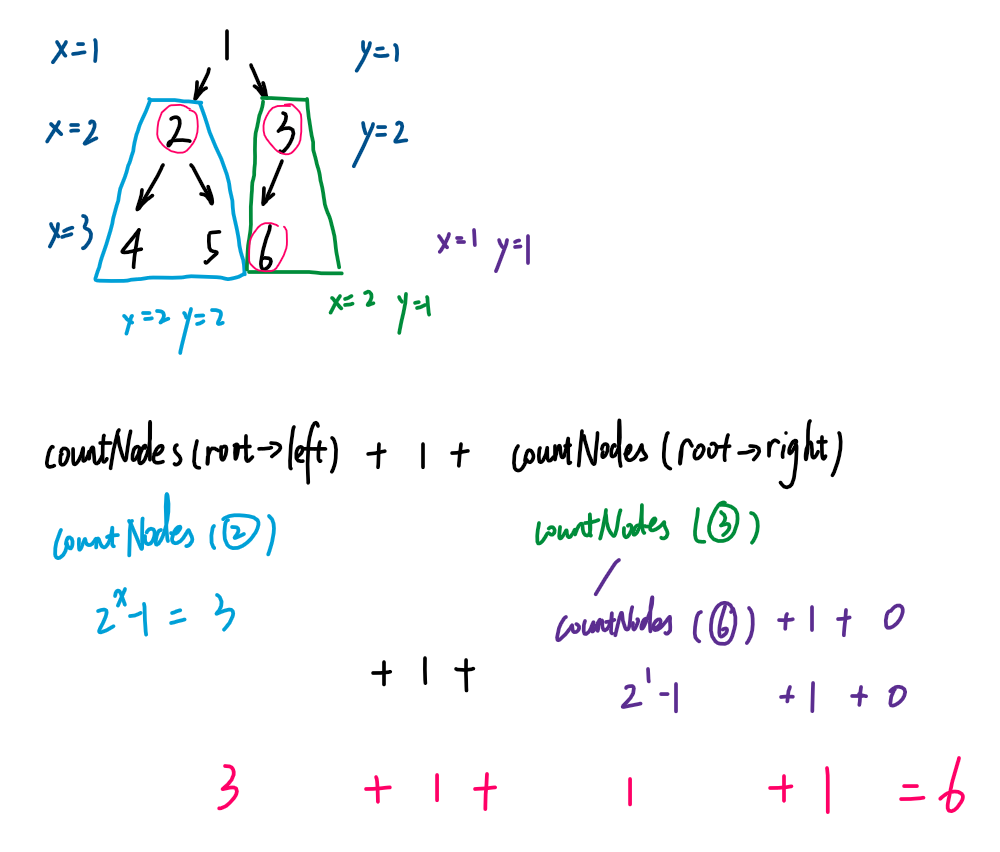 x=1 1 y=1
x=2 2 3 y=2
x=3 4 5 6
x=1 y=1
x=2 y=2 x=2 y=1
countNodes(root→left) + 1 + countNodes(root→right)
countNodes(2) countNodes(3)
2^x-1 = 3 countNodes(6) + 1 + 0
+ 1 + 2^1-1 + 1 + 0
3 + 1 + 1 + 1 = 6